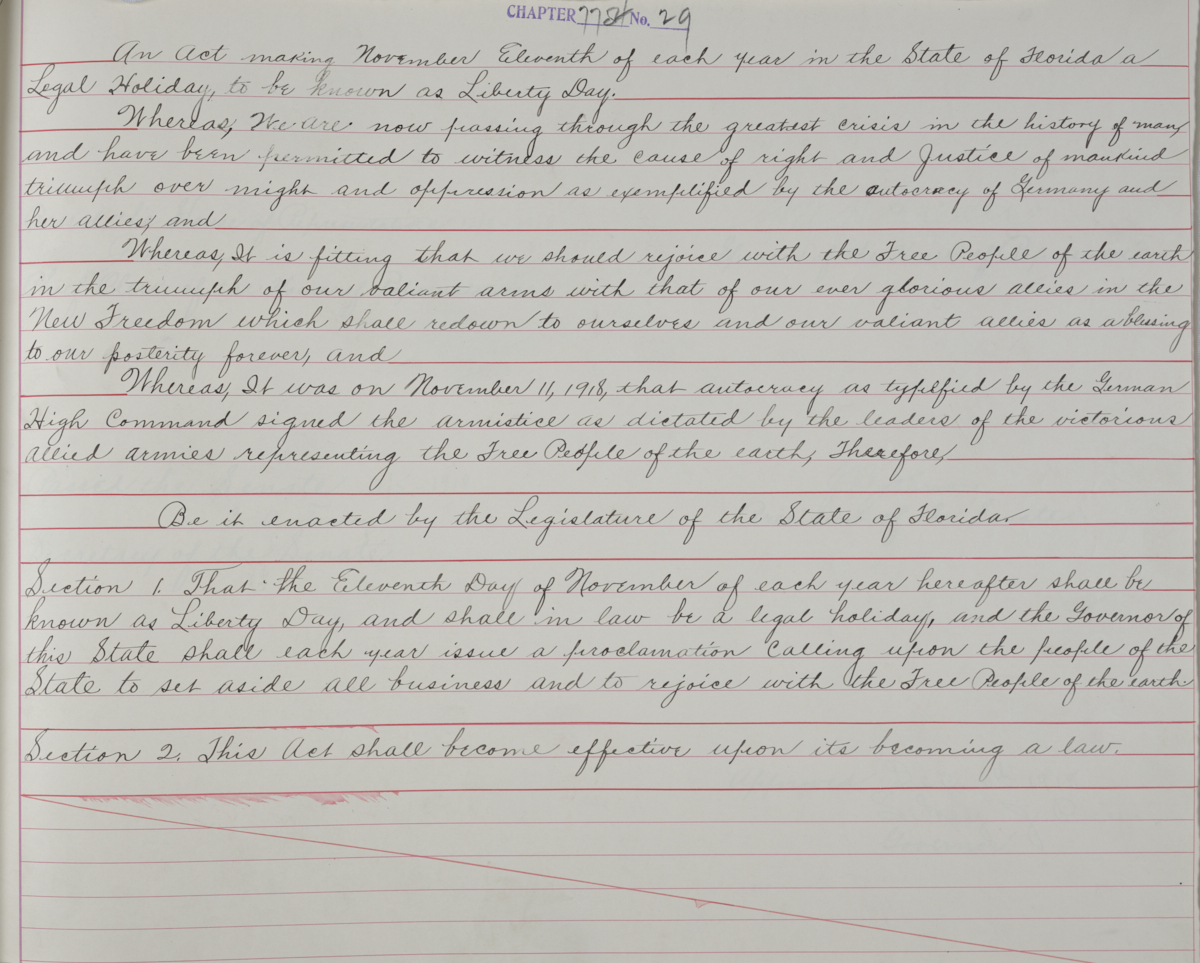 CHAPTER 7728 No. 29
An Act making November Eleventh of each year in the State of Florida a
Legal Holiday, to be known as Liberty Day.
Whereas, We are now passing through the greatest crisis in the history of man,
and have been permitted to witness the cause of right and Justice of mankind
triumph over might and oppression as exemplified by the autocracy of Germany and
her allies; and
Whereas, It is fitting that we should rejoice with the Free People of the earth
in the triumph of our valiant arms with that of our ever glorious allies in the
New Freedom which shall redown to ourselves and our valiant allies as a blessing
to our posterity forever, and
Whereas, It was on November 11, 1918, that autocracy as typfilfied by the German
High Command signed the armistice as dictated by the leaders of the victorious
allied armies representing the Free People of the earth, Therefore,
Be it enacted by the Legislature of the State of Florida.
Section 1. That the Eleventh Day of November of each year hereafter shall be
known as Liberty Day, and shall in law be a legal holiday, and the Governor of
this State shall each year issue a proclamation calling upon the people of the
State to set aside all business and to rejoice with the Free People of the earth.
Section 2. This Act shall become effective upon its becoming a law.